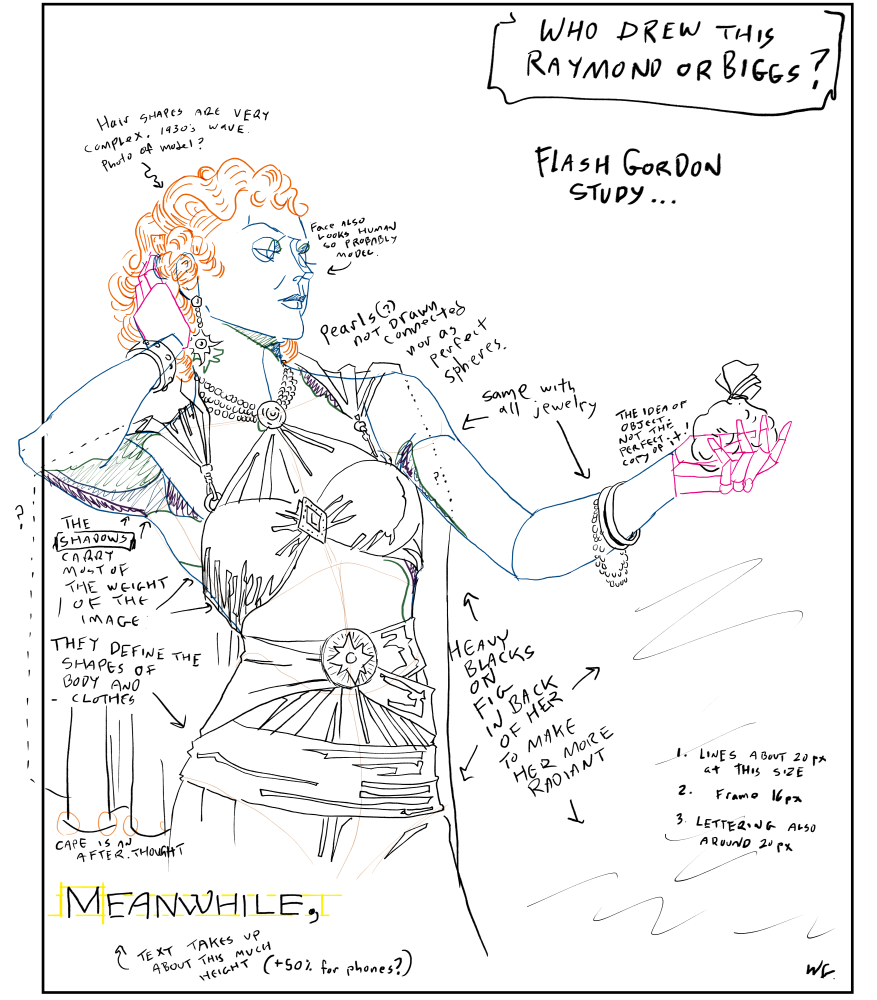 WHO DREW THIS
RAYMOND OR BIGGS?
FLASH GORDON
STUDY...
Hair SHAPES ARE VERY
COMPLEX. 1930's WAVE.
Photo of model?
Face ALSO
LOOKS HUMAN
SO PROBABLY
MODEL.
Pearls(?)
not Drawn
connected
nor as
perfect
spheres.
same with
all jewelry
THE IDEA OF
OBJECT.
NOT THE
PERFECT
COPY OF IT!
?
?
THE
SHADOWS
CARRY
MOST OF
THE WEIGHT
OF THE
IMAGE
THEY DEFINE THE
SHAPES OF
BODY AND
CLOTHES
HEAVY
BLACKS
ON
FIG
IN BACK
OF HER
TO MAKE
HER MORE
RADIANT
1. LINES ABOUT 20 px
at THIS SIZE
2. Frame 16px
3. LETTERING ALSO
AROUND 20 px
CAPE IS AN
AFTER.THOUGHT
MEANWHILE,
TEXT TAKES UP
ABOUT THIS MUCH
HEIGHT (+50% for phones?)
WG.